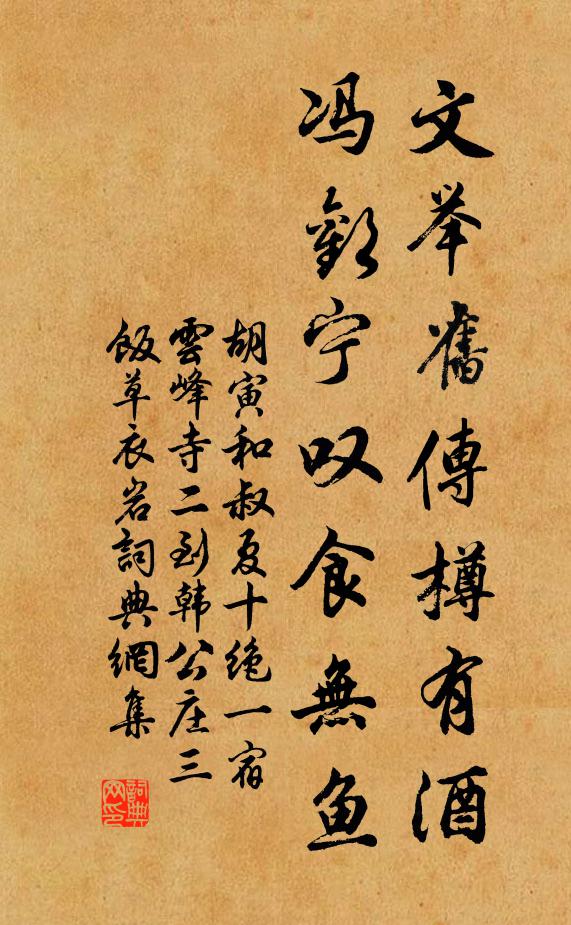 文举舊傳樽有酒
冯歡宁叹食無鱼
胡寅和叔夏十絶一宿
雲峰寺二到韩公庄三
飯草衣岩詞典網集
詞典网印